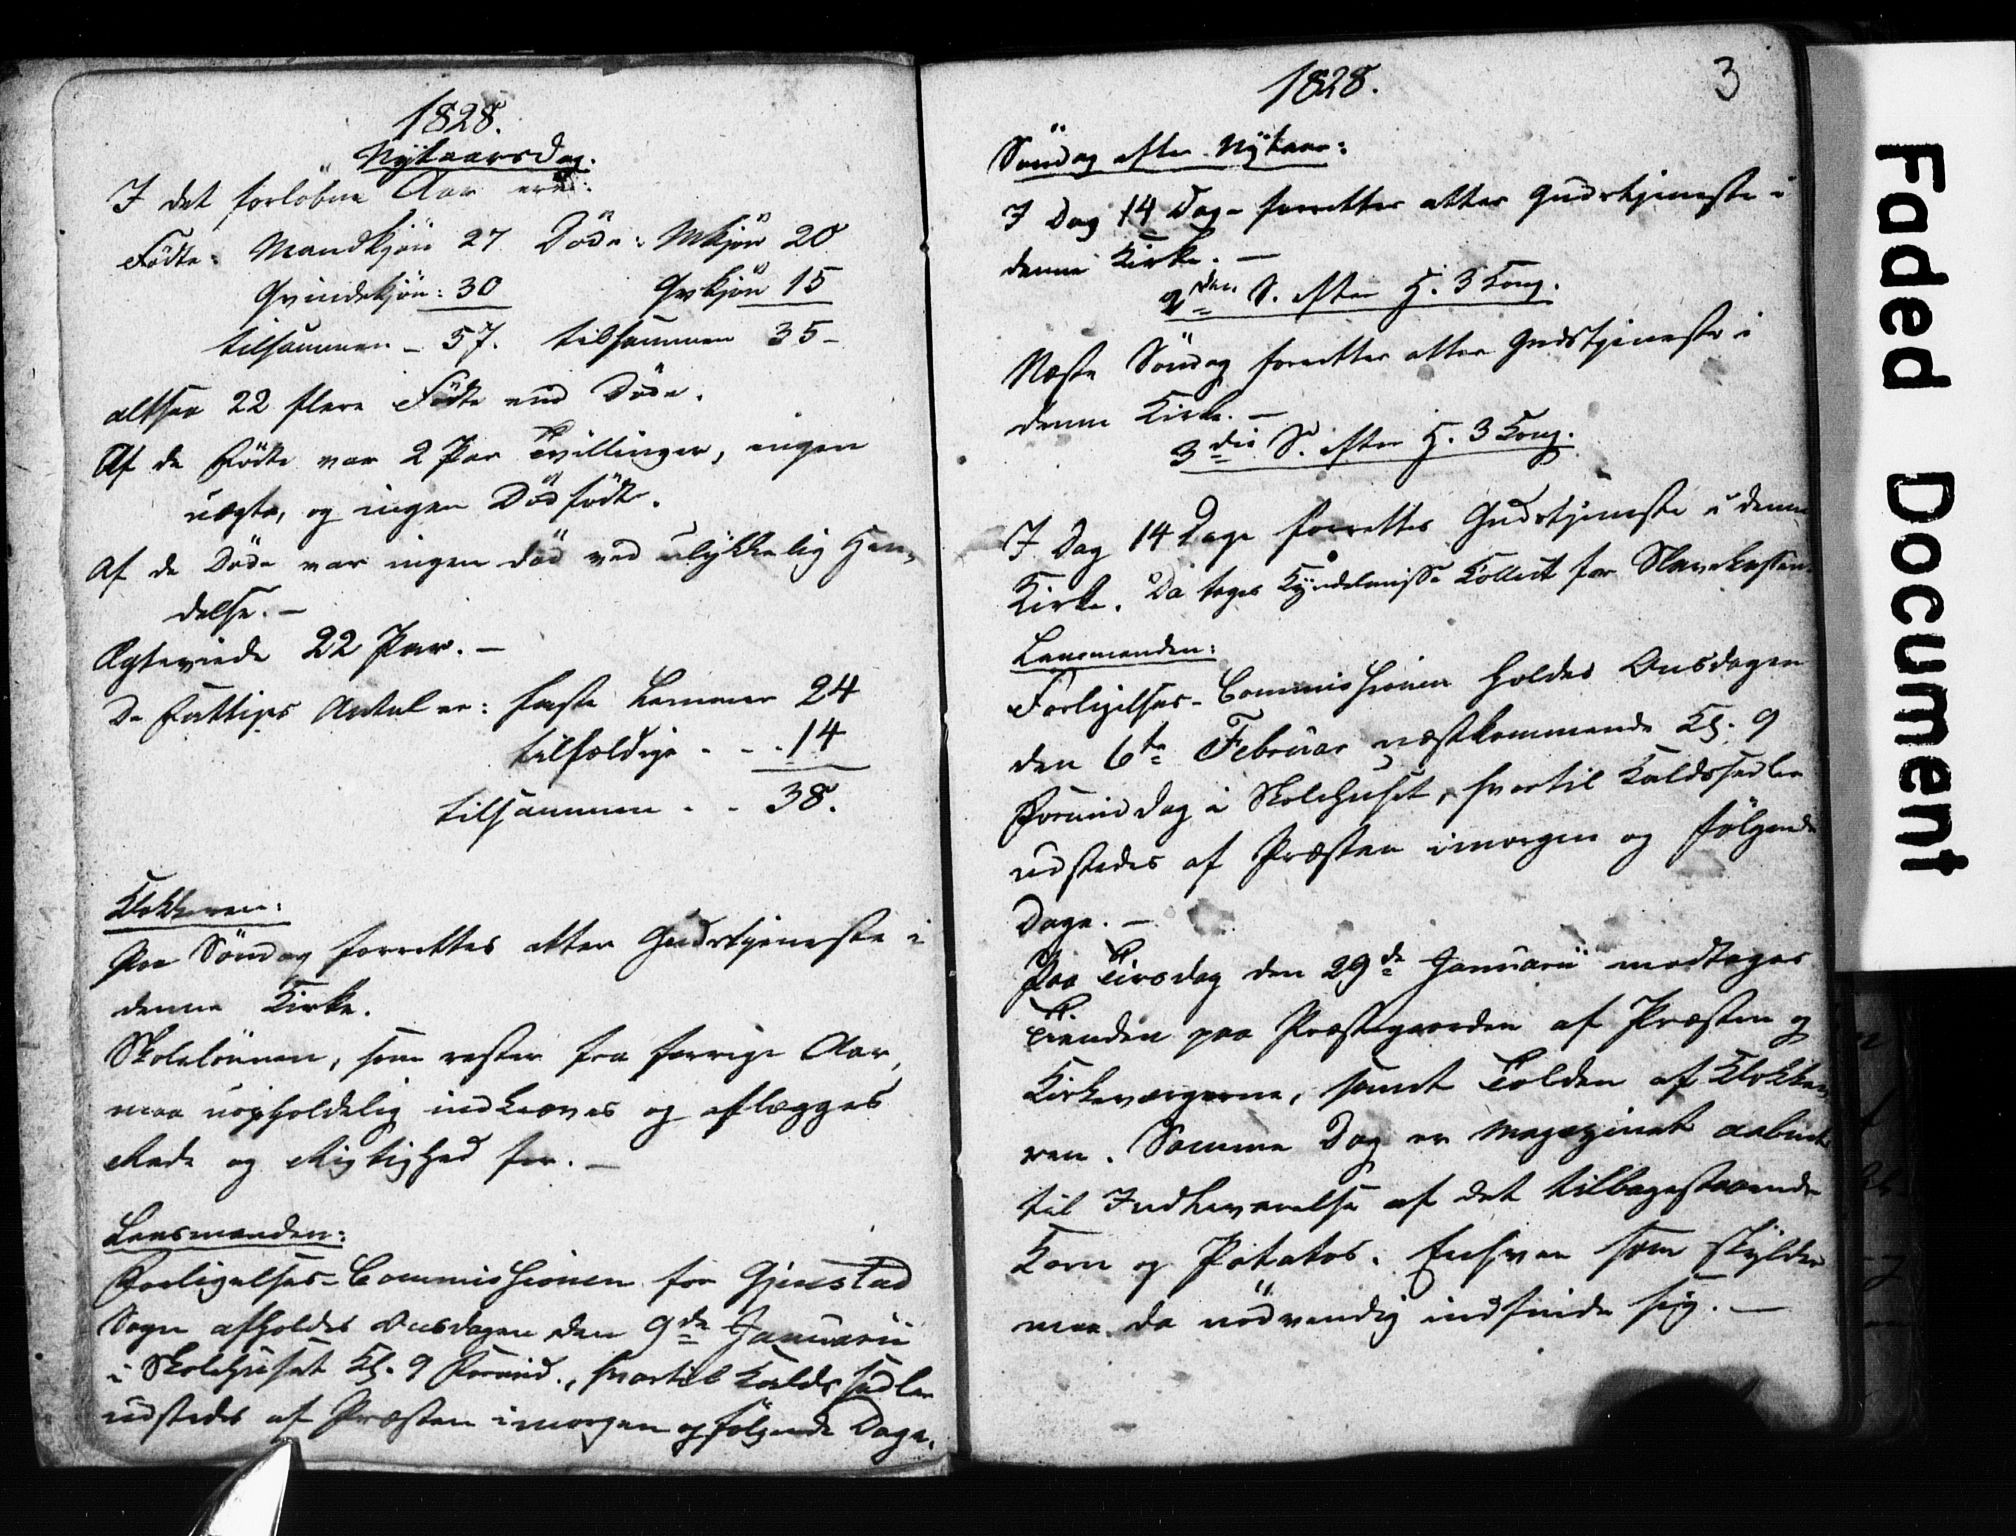 1828.
Nÿtaarsdag.
I det forløbne Aar ere:
Födte: Mandkjön 27 Döde: Mkjön 20
Qvindekjön: 30 Qvkjön 15
tilsammen - 57. tilsammen 35 -
altsaa 22 flere Födte end Döde.
Af de Födte var 2 Par Tvillinger, ingen
uægte, og ingen Dödfödte.
Af de Döde var ingen död ved ulykkelig Hæn-
delse. -
Ægteviede 22 Par. -
De Fattiges Antal er: faste Lemmer 24
tilfældige - - . 14
tilsammen - - 38.
Klokkeren:
Paa Söndag forrettes atter Gudstjeneste i
denne Kirke.
Skolelönnen, som rester fra forrige Aar,
maa uopholdelig indkræves og aflægges
Rede og Rigtighed for. -
Lensmanden:
Forligelses-Commissionen for Gjerstad
Sogn afholdes Onsdagen den 9de Januarii
i Skolehuset Kl. 9 Formid., hvortil Kaldssedler
udstedes af Præsten imorgen og følgende Dage.
1828.
3
Söndag efter Nÿtaar:
I Dag 14 Dage forrettes atter Gudstjeneste i
denne Kirke. -
2den S. efter H. 3 Kong.
Næste Söndag forrettes atter Gudstjeneste i
denne Kirke. -
3die S. efter H. 3 Kong.
I Dag 14 Dage forrettes Gudstjeneste i denne
Kirke. Da tages Kyndelmisse Collect for Slavekassen.
Lensmanden:
Forligelses-Commissionen holdes Onsdagen
den 6te Februar næstkommende Kl. 9
Formiddag i Skolehuset, hvortil Kaldssedler
udstedes af Præsten imorgen og følgende
Dage. -
Paa Tirsdag den 29de Januarii modtages
Tienden paa Præstegaarden af Præsten og
Kirkeværgerne, samt Tolden af Klokke-
ren. Samme Dag er Magazinet aabent
til Indleverelse af det tilbagestaaende
Korn og Potatos. Enhver som skylder
maa da nödvendig indfinde sig. -
Faded Document